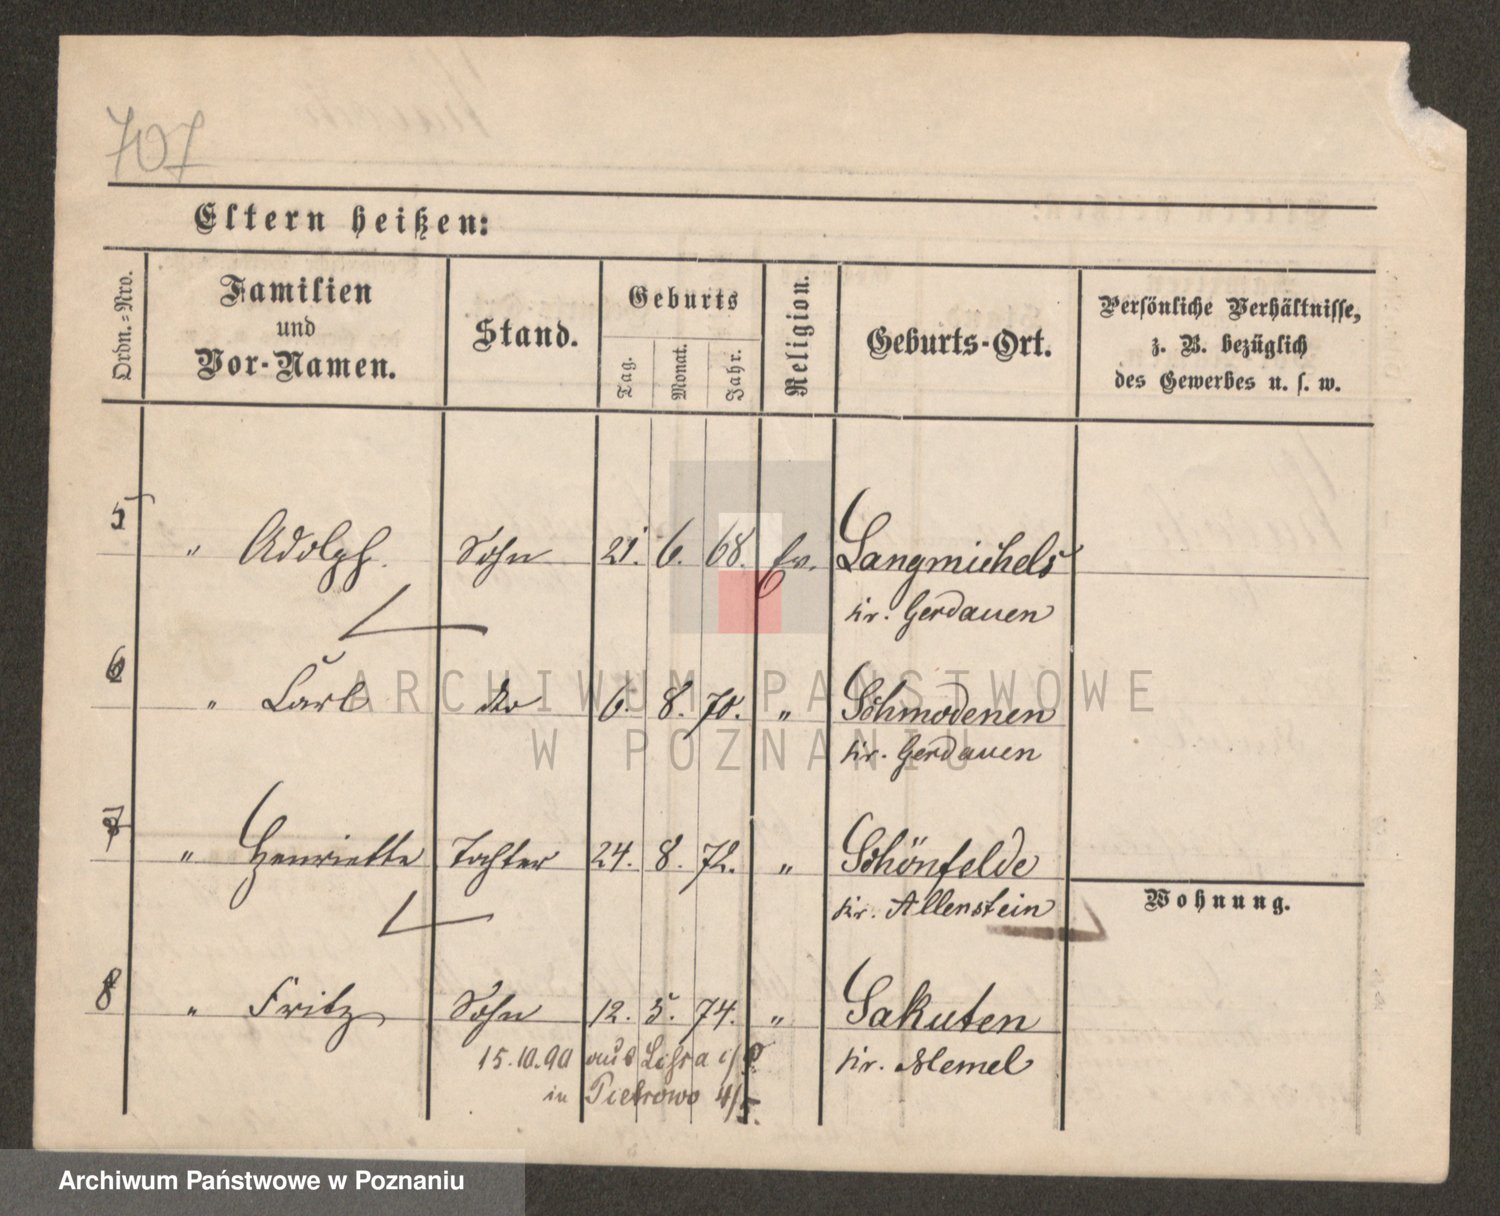 707
Eltern heißen:
Ordn.-Nro.
Familien
und
Vor-Namen.
Stand.
Geburts
Tag.
Monat.
Jahr.
Religion.
Geburts-Ort.
Persönliche Verhältnisse,
z. B. bezüglich
des Gewerbes u. s. w.
5 " Adolph. Sohn 21. 6. 68. Ev. Langmichels
Kr. Gerdauen
6 " Carl dto 6. 8. 70. " Schmodenen
Kr. Gerdauen
7 " Henriette Tochter 24. 8. 72. " Schönfelde
Kr. Allenstein
Wohnung.
8 " Fritz Sohn 12. 5. 74. " Sakuten
Kr. Memel
15.10.90 aus
in Pietrowo 4/5.
ARCHIWUM PAŃSTWOWE
W POZNANIU
Archiwum Państwowe w Poznaniu